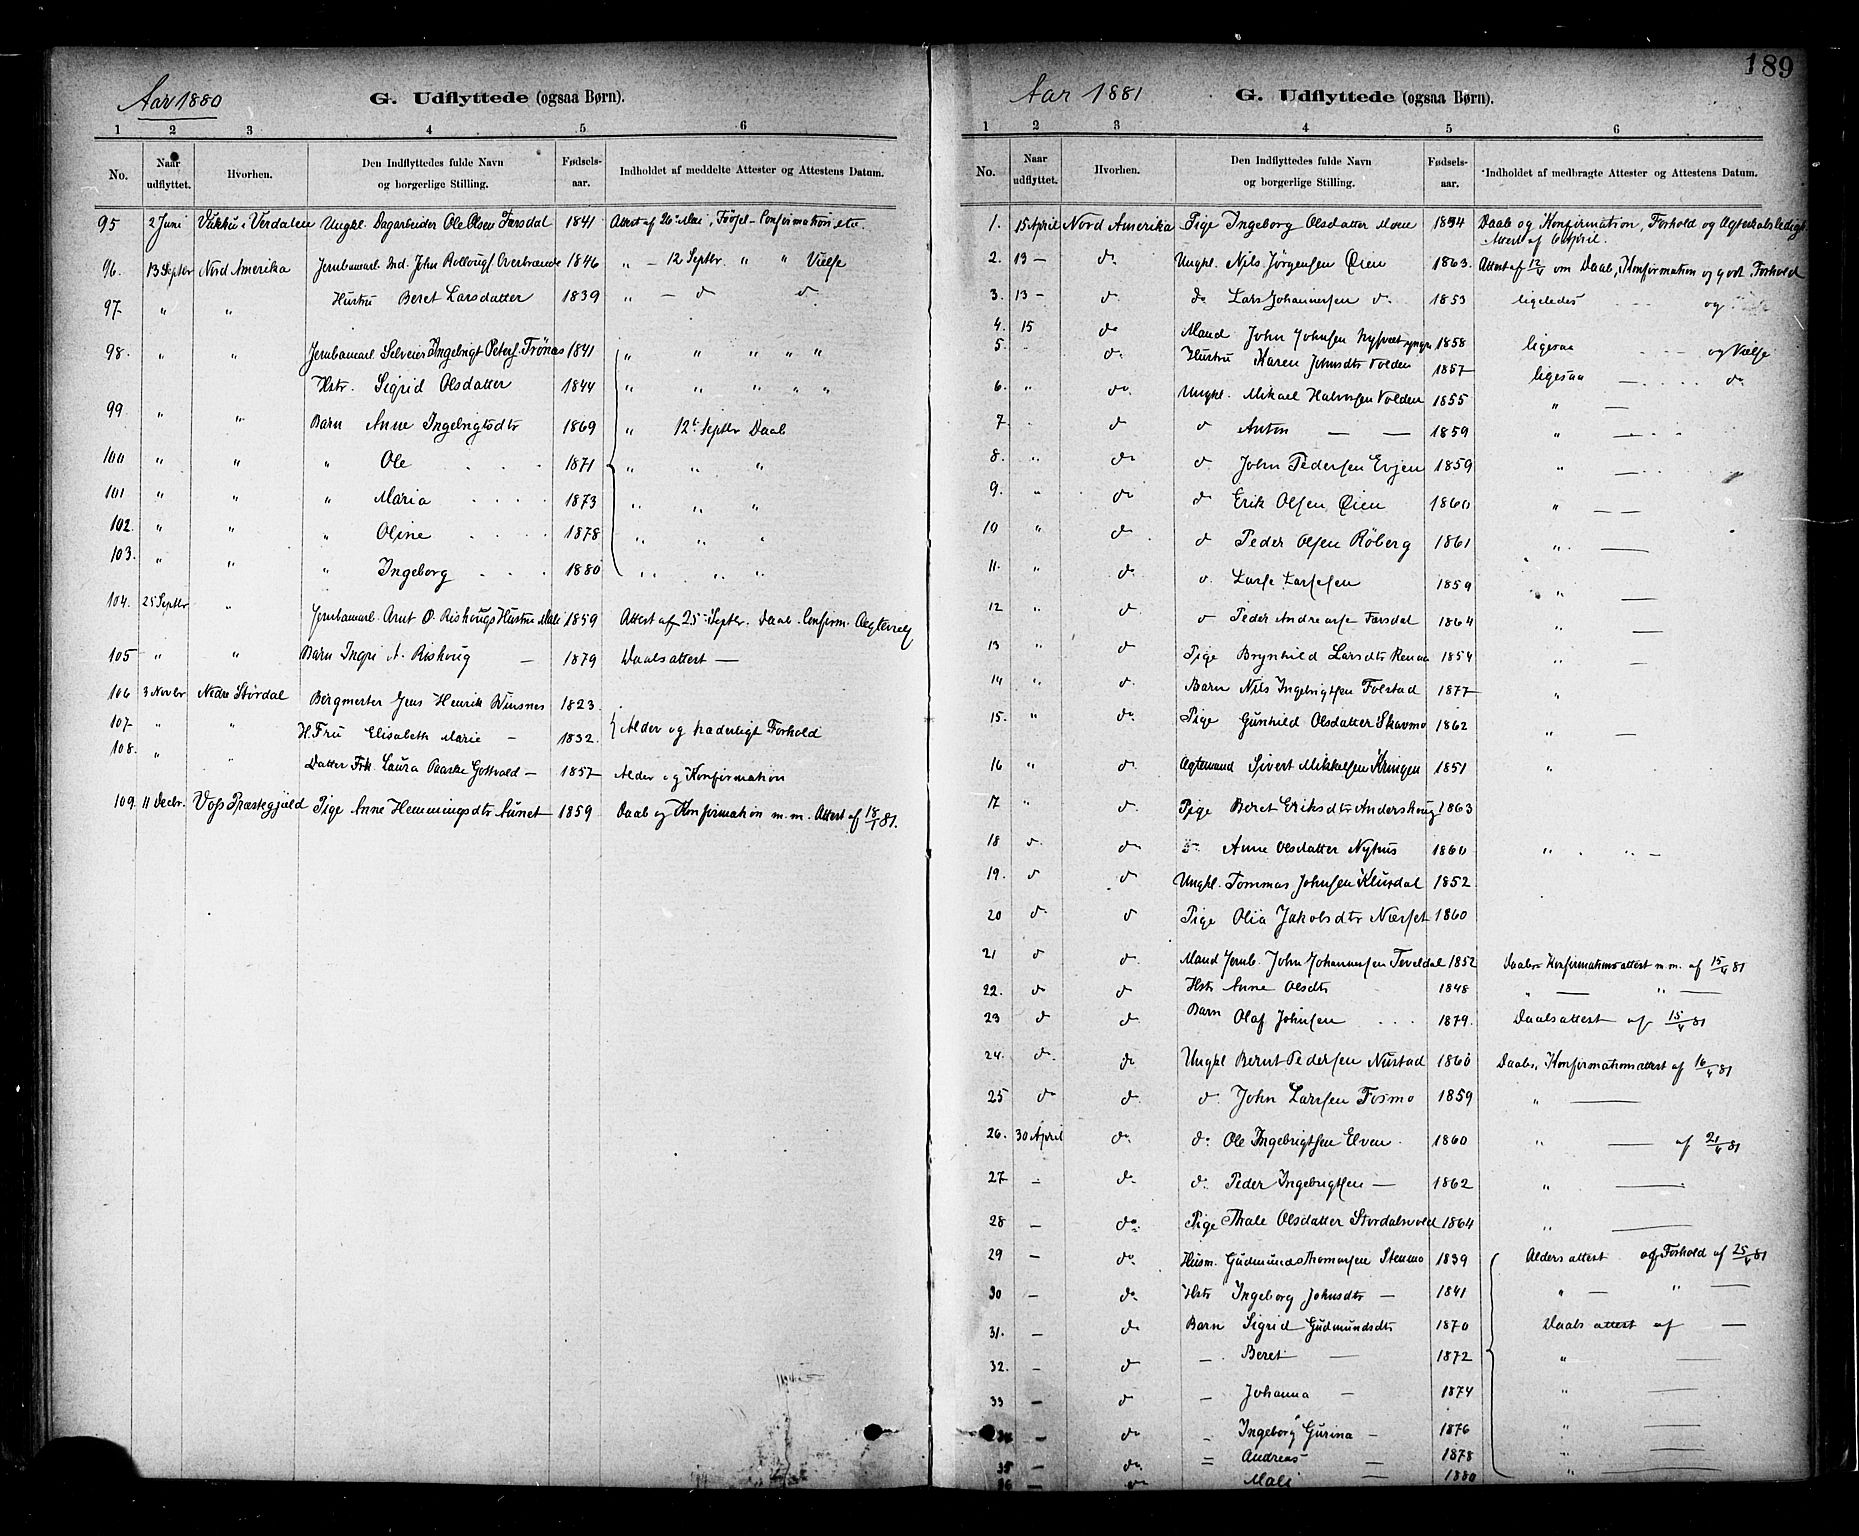 189
Aar 1880
G. Udflyttede (ogsaa Børn).
1 2 3 4 5 6
No. Naar udflyttet. Hvorhen. Den Indflyttedes fulde Navn og borgerlige Stilling. Fødsels-aar. Indholdet af meddelte Attester og Attestens Datum.
95 2 Juni Vukku i Verdalen Ungkl. Dagarbeider Ole Olsen Færsdal 1841 Attest af 26 Mai, Fødsel- Confirmation etc.
96. 13 Septbr Nord Amerika John Overbrænde 1846 " — 12 Septbr. " " Vielse
97 " " Hustru Beret Larsdatter 1839 " — do do
98. " " Ingebrigt Peters. Trönes 1841 " " " " "
Hstr. Sigrid Olsdatter 1844 " " " " "
99 " " Barn Anne Ingebrigtsdtr 1869 " 12t Septbr Daab
100 " " " Ole . . . 1871 " " "
101 " " " Maria . . . . 1873 " " "
102. " " " Oline . . . . 1878 " " "
103. " " " Ingeborg . . . 1880 " " "
104. 25 Septbr " Arnt O. Rishougs Hustru Mali 1859 Attest af 25 Septbr. Daab. Confirm.
105 " " Barn Ingri A. Rishoug — 1879 Daabsattest —
106 3 Novbr Nedre Størdal Bergmester Jens Henrik Winsnes 1823
107 " " H. Fru Elisabeth Marie — 1832. Alder og hæderligt Forhold
108. " " Datter Frk. Laura Paaske Gottvald — 1857 Alder og Konfirmation
109. 11 Decbr. Voss Præstegjæld Pige Anne Hemmingsdtr Aunet 1859 Daab og Konfirmation m.m. Attest af 18/1 81.
Aar 1881
G. Udflyttede (ogsaa Børn).
1 2 3 4 5 6
No. Naar udflyttet. Hvorhen. Den Indflyttedes fulde Navn og borgerlige Stilling. Fødsels-aar. Indholdet af medbragte Attester og Attestens Datum.
1. 15 April Nord Amerika Pige Ingeborg Olsdatter Moen 1854 Daab og Konfirmation, Forhold og
Attest af 6 April.
2. 13 — do Ungkl. Nils Jörgensen Øien 1863. Attest af 12/4 om Daab, Konfirmation og godt Forhold
3. 13 — do do Lars Johannesen do 1853 ligeledes og
4. 15 do Mand John Johnsen 1858 ligesaa og Vielse
5. do Hustru Karen Johnsdtr Volden 1857 ligesaa — do
6. " do Ungkl. Mikael Halvorsen Volden 1855 " —
7. do do Anton — — 1859 " —
8. " do do John Pedersen Evjen 1859 " —
9. " do do Erik Olsen Øien 1860 " — —
10 " do do Peder Olsen Röberg 1861 " —
11. " do do Larsesen 1859 " —
12 " do do Peder Færsdal 1864 " —
13 " do Pige Brynhild Larsdtr 1854 " —
14 " do Barn Nils Ingebrigtsen Folstad 1877 "
15. " do Pige Gunhild Olsdatter Skavmo 1862 " —
16 " do Sivert Mikkelsen Kringen 1851 "
17 " do Pige Beret Eriksdtr Andershoug 1863
18 do do do Anne Olsdatter Nyhus 1860 " . " —
19. do do Ungkl. Tommas Johnsen Klusdal 1852
20 do do Pige Olia Jakobsdtr 1860
21 do do Mand Jernb. John Johannesen Teveldal 1852 Daabs Konfirmationsattest m.m. af 15/4 81
22. do do Hstr Anne Olsdtr 1848 " — " —
23 do do Barn Olaf Johnsen . . . 1879. Daabsattest af 15/4 81
24. do do Ungkl Bernt Pedersen Nustad 1860 Daabs, Konfirmationsattest af 16/4 81
25 do do do John Larssen Fosmo 1859 " —
26. 30 April do do Ole Ingebrigtsen Elven 1860 " — af 21/4 81
27 — do do Peder Ingebrigtsen — 1862 " —
28 — do Pige Thale Olsdatter Stordalsvold 1864 " —
29 — do Husm. Gudmund Thomassen Stenmo 1839 Aldersattest og Forhold af 25/4 81
30 — do Hstr Ingeborg Johnsdtr — 1841 " — " —
31. — do Barn Sigrid Gudmundsdtr 1870 Daabsattest af —
32. — do — Beret — 1872 " —
33 — do — Johanna — 1874 " —
34 — do — Ingeborg Gurina — 1876 " —
35 — do — Andreas — 1878 " —
36 — do Mali — 1880 " —